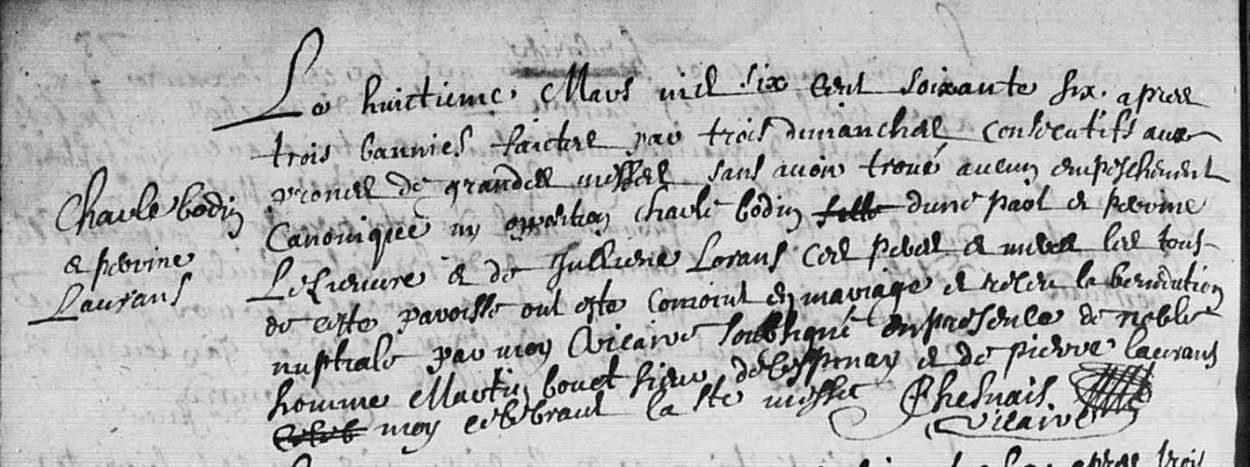 Le huictieme Mars mil six cent soixante six. apres
trois bannies faictes par trois dimanches consecutifs aux
prones de grandes messes sans avoir trouvé aucun empeschement
Charle bodin
Canonique ny opposition charle bodin fille dune part et perrine
et perrine
Laurans
et de Julliene Lorans ses peres et meres les tous
de cette paroisse ont esté conioint en mariage et receu la benediction
nuptiale par moy Vicaire soubsigné en presence de noble
homme Martin bouet sieur de lespinay et de pierre laurans
moy celebrant la ste messe Chesnais
vicaire
apres trois